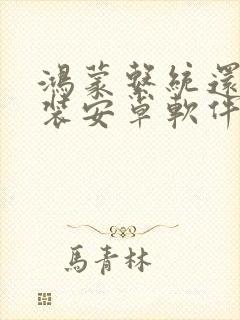 鴻蒙繫統還
裝安卓軟件
馬青林